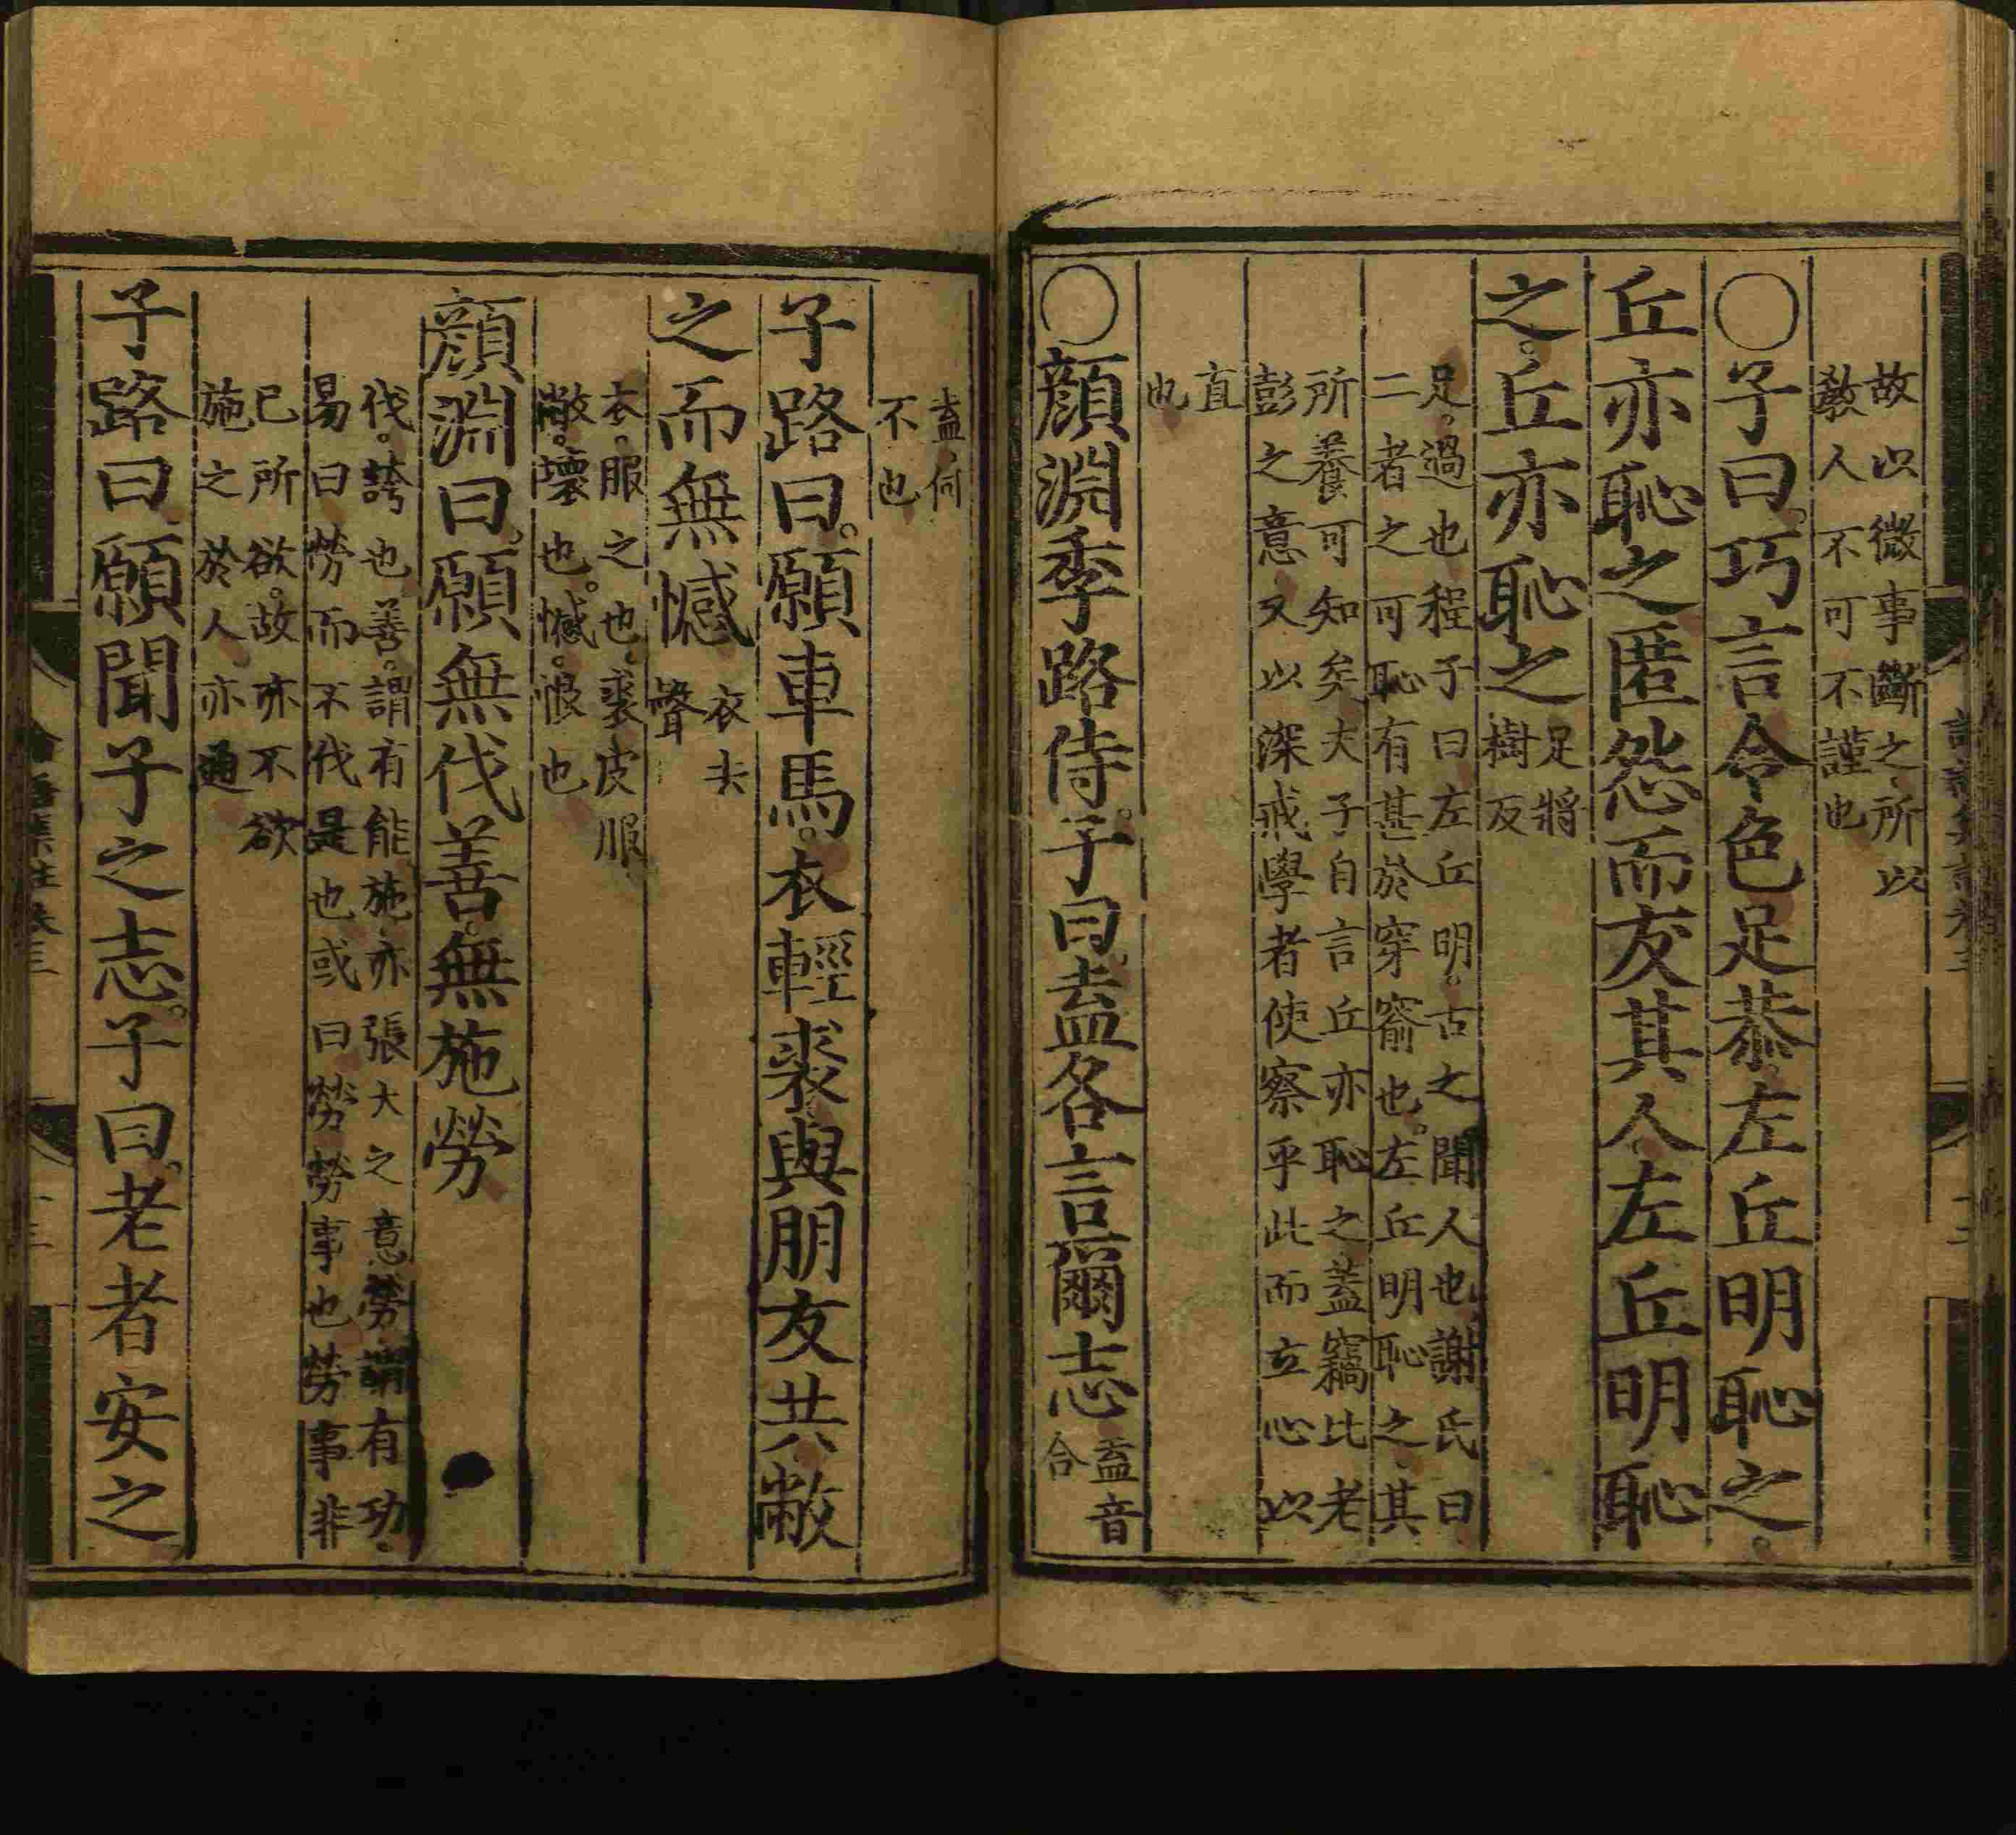 故以微事斷之、所以
敎人不可不謹也
○子曰。巧言令色足恭左丘明恥之。
丘亦恥之匿怨而友其人左丘明恥
之。丘亦恥之
足將
樹反
足。過也程子曰左丘明。古之聞人也、謝氏曰
二者之可恥有甚於穿窬也。左丘明恥之、其
所養可知矣夫子自言丘亦恥之蓋竊比老
彭之意又以深戒學者使察乎此而立心以
直
也
○顏淵季路侍。子曰。盍各言爾志
盍音
合
盍、何
不也
子路曰。願車馬。衣輕裘與朋友共敝
之而無憾
衣去
聲
衣。服之也、裘皮服
敝。壞也。憾。恨也
顏淵曰。願無伐善。無施勞
伐。誇也善。謂有能施、亦張大之意勞謂有功、
易曰勞而不伐是也或曰勞勞事也勞事非
已所欲。故亦不欲
施之於人亦通
子路曰願聞子之志。子曰。老者安之